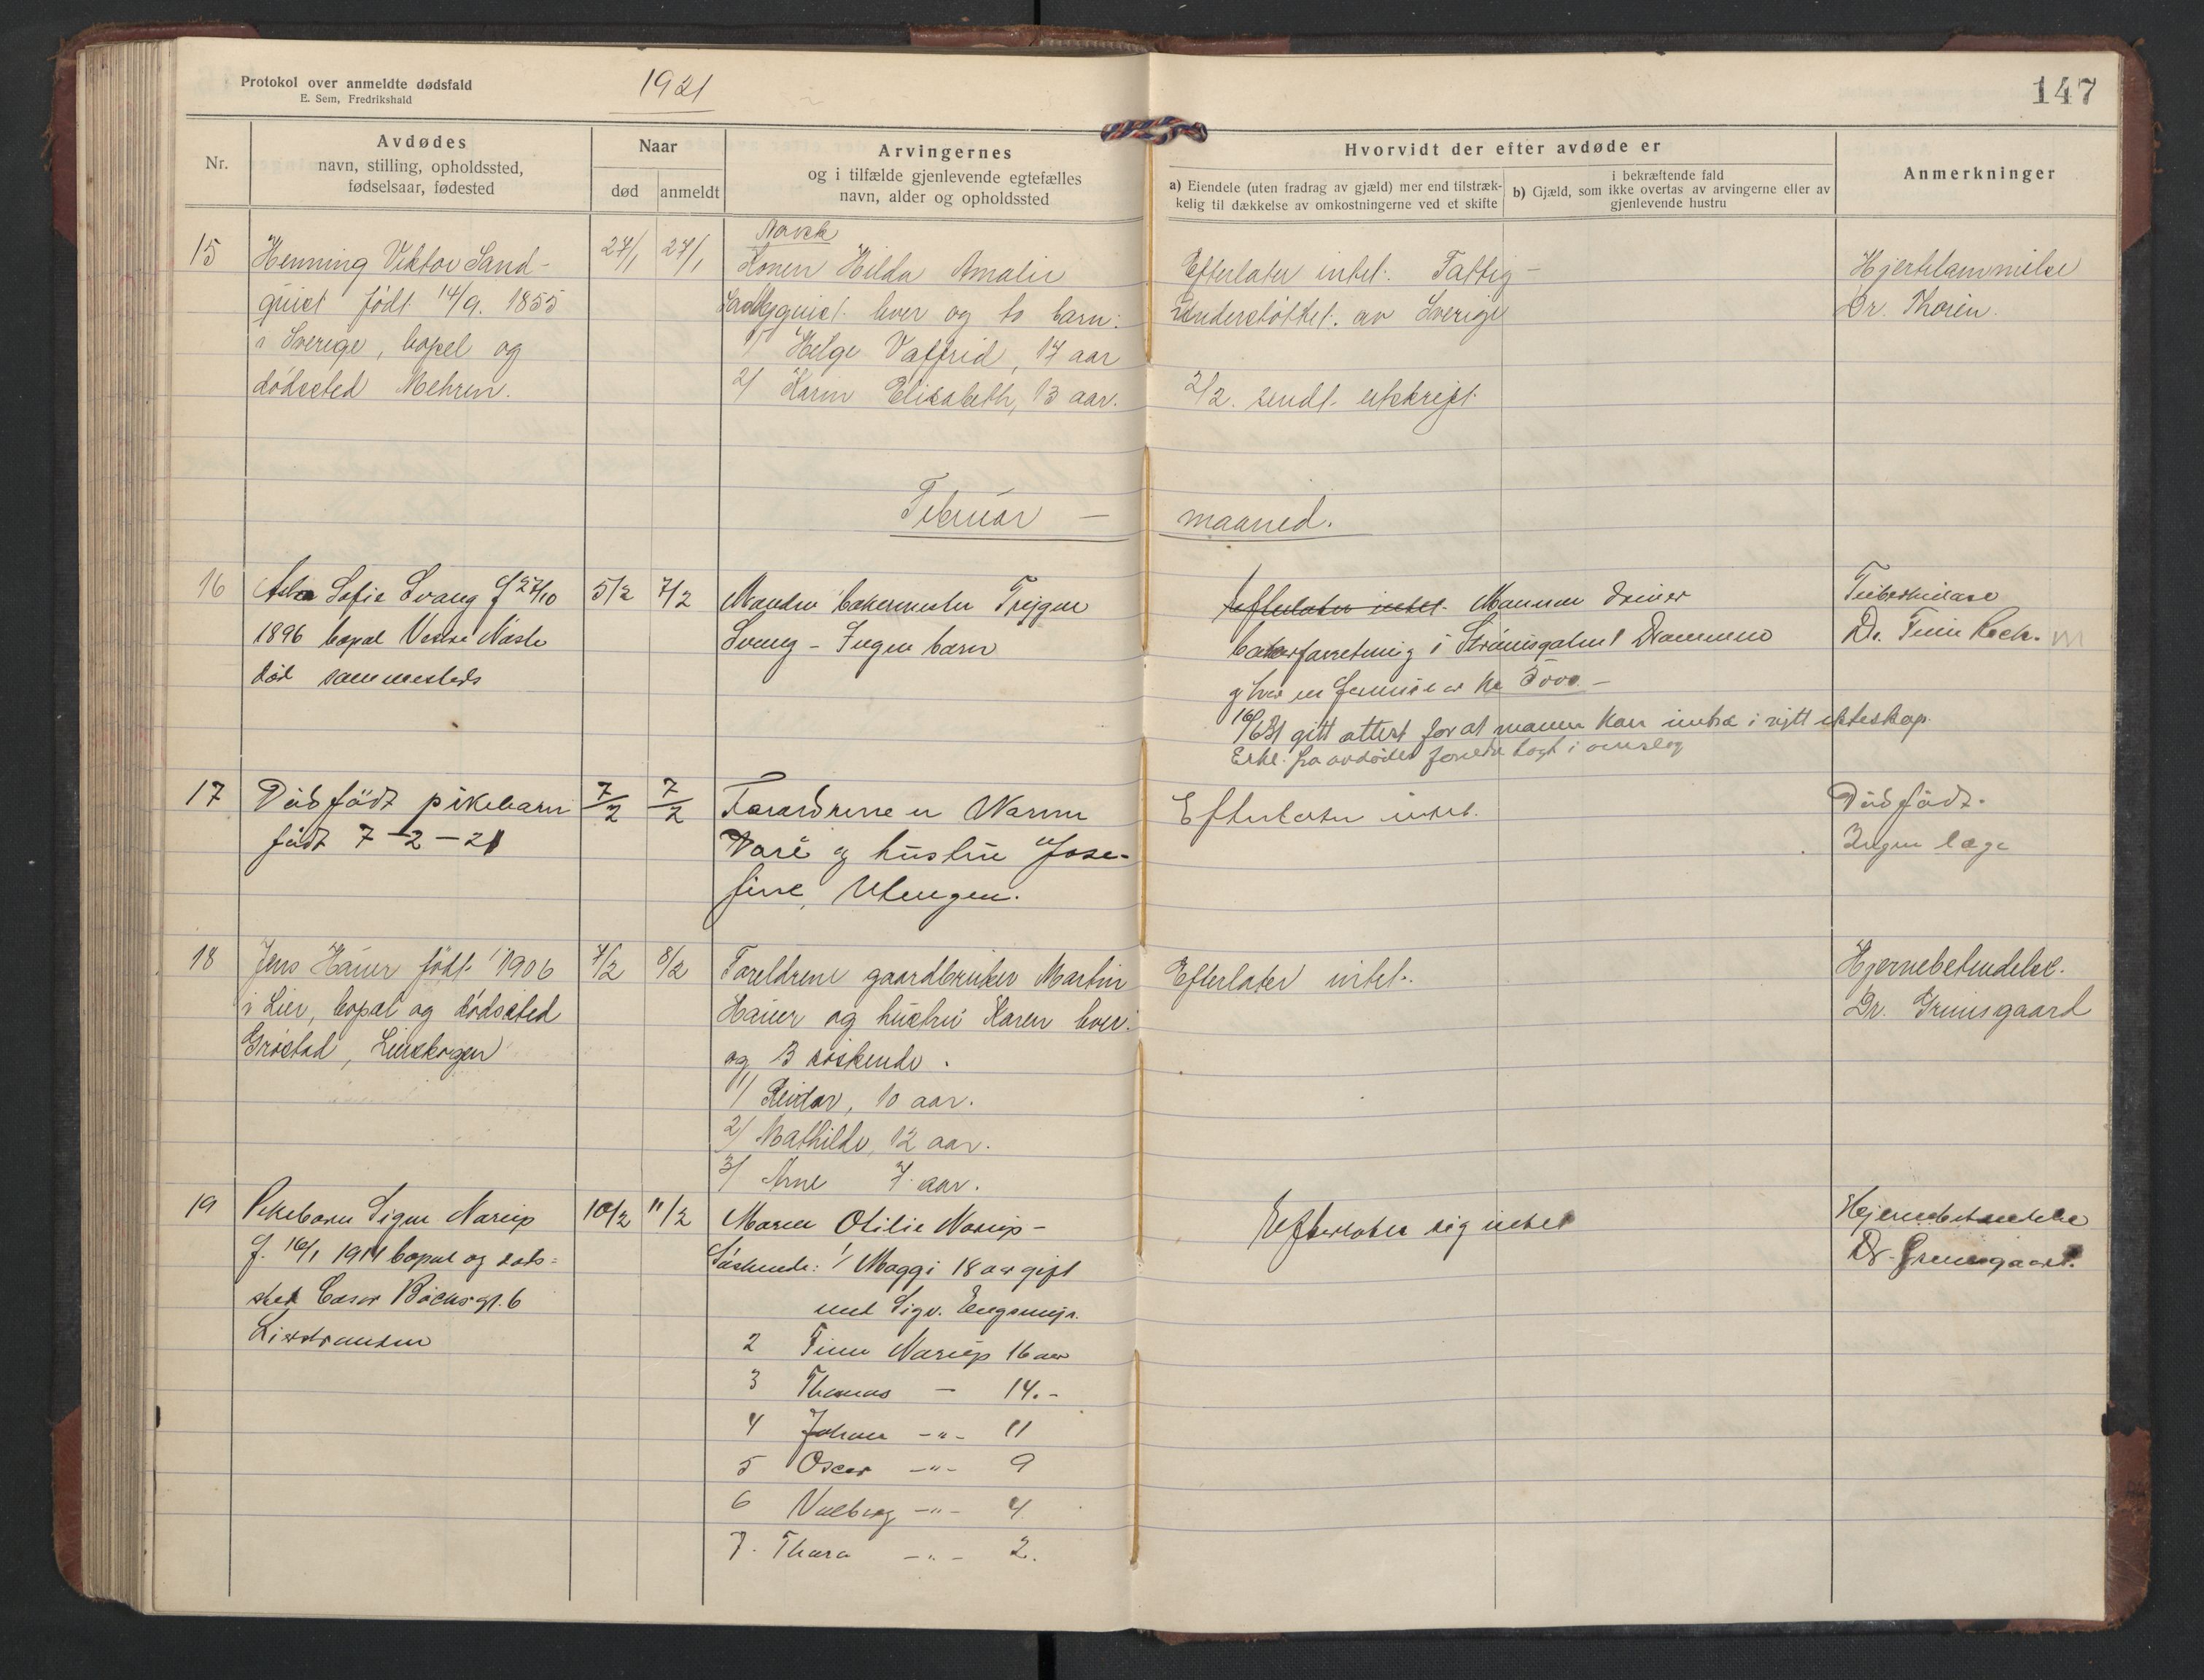 Protokol over anmeldte dødsfald
E. Sem, Fredrikshald
1921
147
Nr.
Avdødes
navn, stilling, opholdssted,
fødselsaar, fødested
Naar
død
anmeldt
Arvingernes
og i tilfælde gjenlevende egtefælles
navn, alder og opholdssted
Hvorvidt der efter avdøde er
a) Eiendele (uten fradrag av gjæld) mer end tilstræk-
kelig til dækkelse av omkostningerne ved et skifte
i bekræftende fald
b) Gjæld, som ikke overtas av arvingerne eller av
gjenlevende hustru
Anmerkninger
15
Henning Viktor Sand-
quist født 14/9. 1855
i Sverige, bopel og
dødssted Mehren.
27/1
27/1
Norsk
Konen Hilda Amalie
Sandquist lever og to barn:
1/ Helge Valfrid, 17 aar
2/ Karin Elisabeth, 13 aar.
Efterlater intet. Fattig-
understøttet. av Sverige
2/2. sendt utskrift.
Hjertelammelse
Dr. Thorén.
Februar —
maaned.
16
Sofie Svang f 27/10
1896 bopæl Vestre Nøste
død sammesteds
5/2
7/2
Manden bakermester Trygve
Svang - Ingen barn
Efterlater intet. Mannen driver
bakerforretning i Drammen
16/6 31 gitt attest for at mannen kan inntre i nytt ekteskap.
Erkl. fra avdødes foreldre lagt i omslag
Tuberkulose
Dr.
17
Dødfødt pikebarn
født 7-2-21
7/2
7/2
Forældrene er
og hustru Jose-
fine, Utengen.
Efterlater intet.
Dødfødt.
Ingen læge
18
Jens Hauer født 1906
i Lier, bopæl og dødssted
Grøstad, Lierskogen
7/2
8/2
Foreldrene gaardbruker Martin
Hauer og hustru Karen lever.
og 3 søskende.
1/ Reidar, 10 aar.
2/ Mathilde, 12 aar.
3/ Arne 7 aar.
Efterlater intet.
Hjernebetendelse.
Dr. Grimsgaard
19
Pikebarn Signe Narup
f. 16/1 1911 bopæl og døds=
sted
Lierstranden
10/2
11/2
Maren Otilie Narup -
Søskende: 1/ Maggi 18 aar gift
med Sigv.
2 Finn Narup 16 aar
3 Thomas — 14.-
4 Johan -"- 11
5 Oscar -"- 9
6 Valborg -"- 4
7. Thora -"- 2.
Efterlater sig intet
Hjernebetendelse
Dr. Grimsgaard.